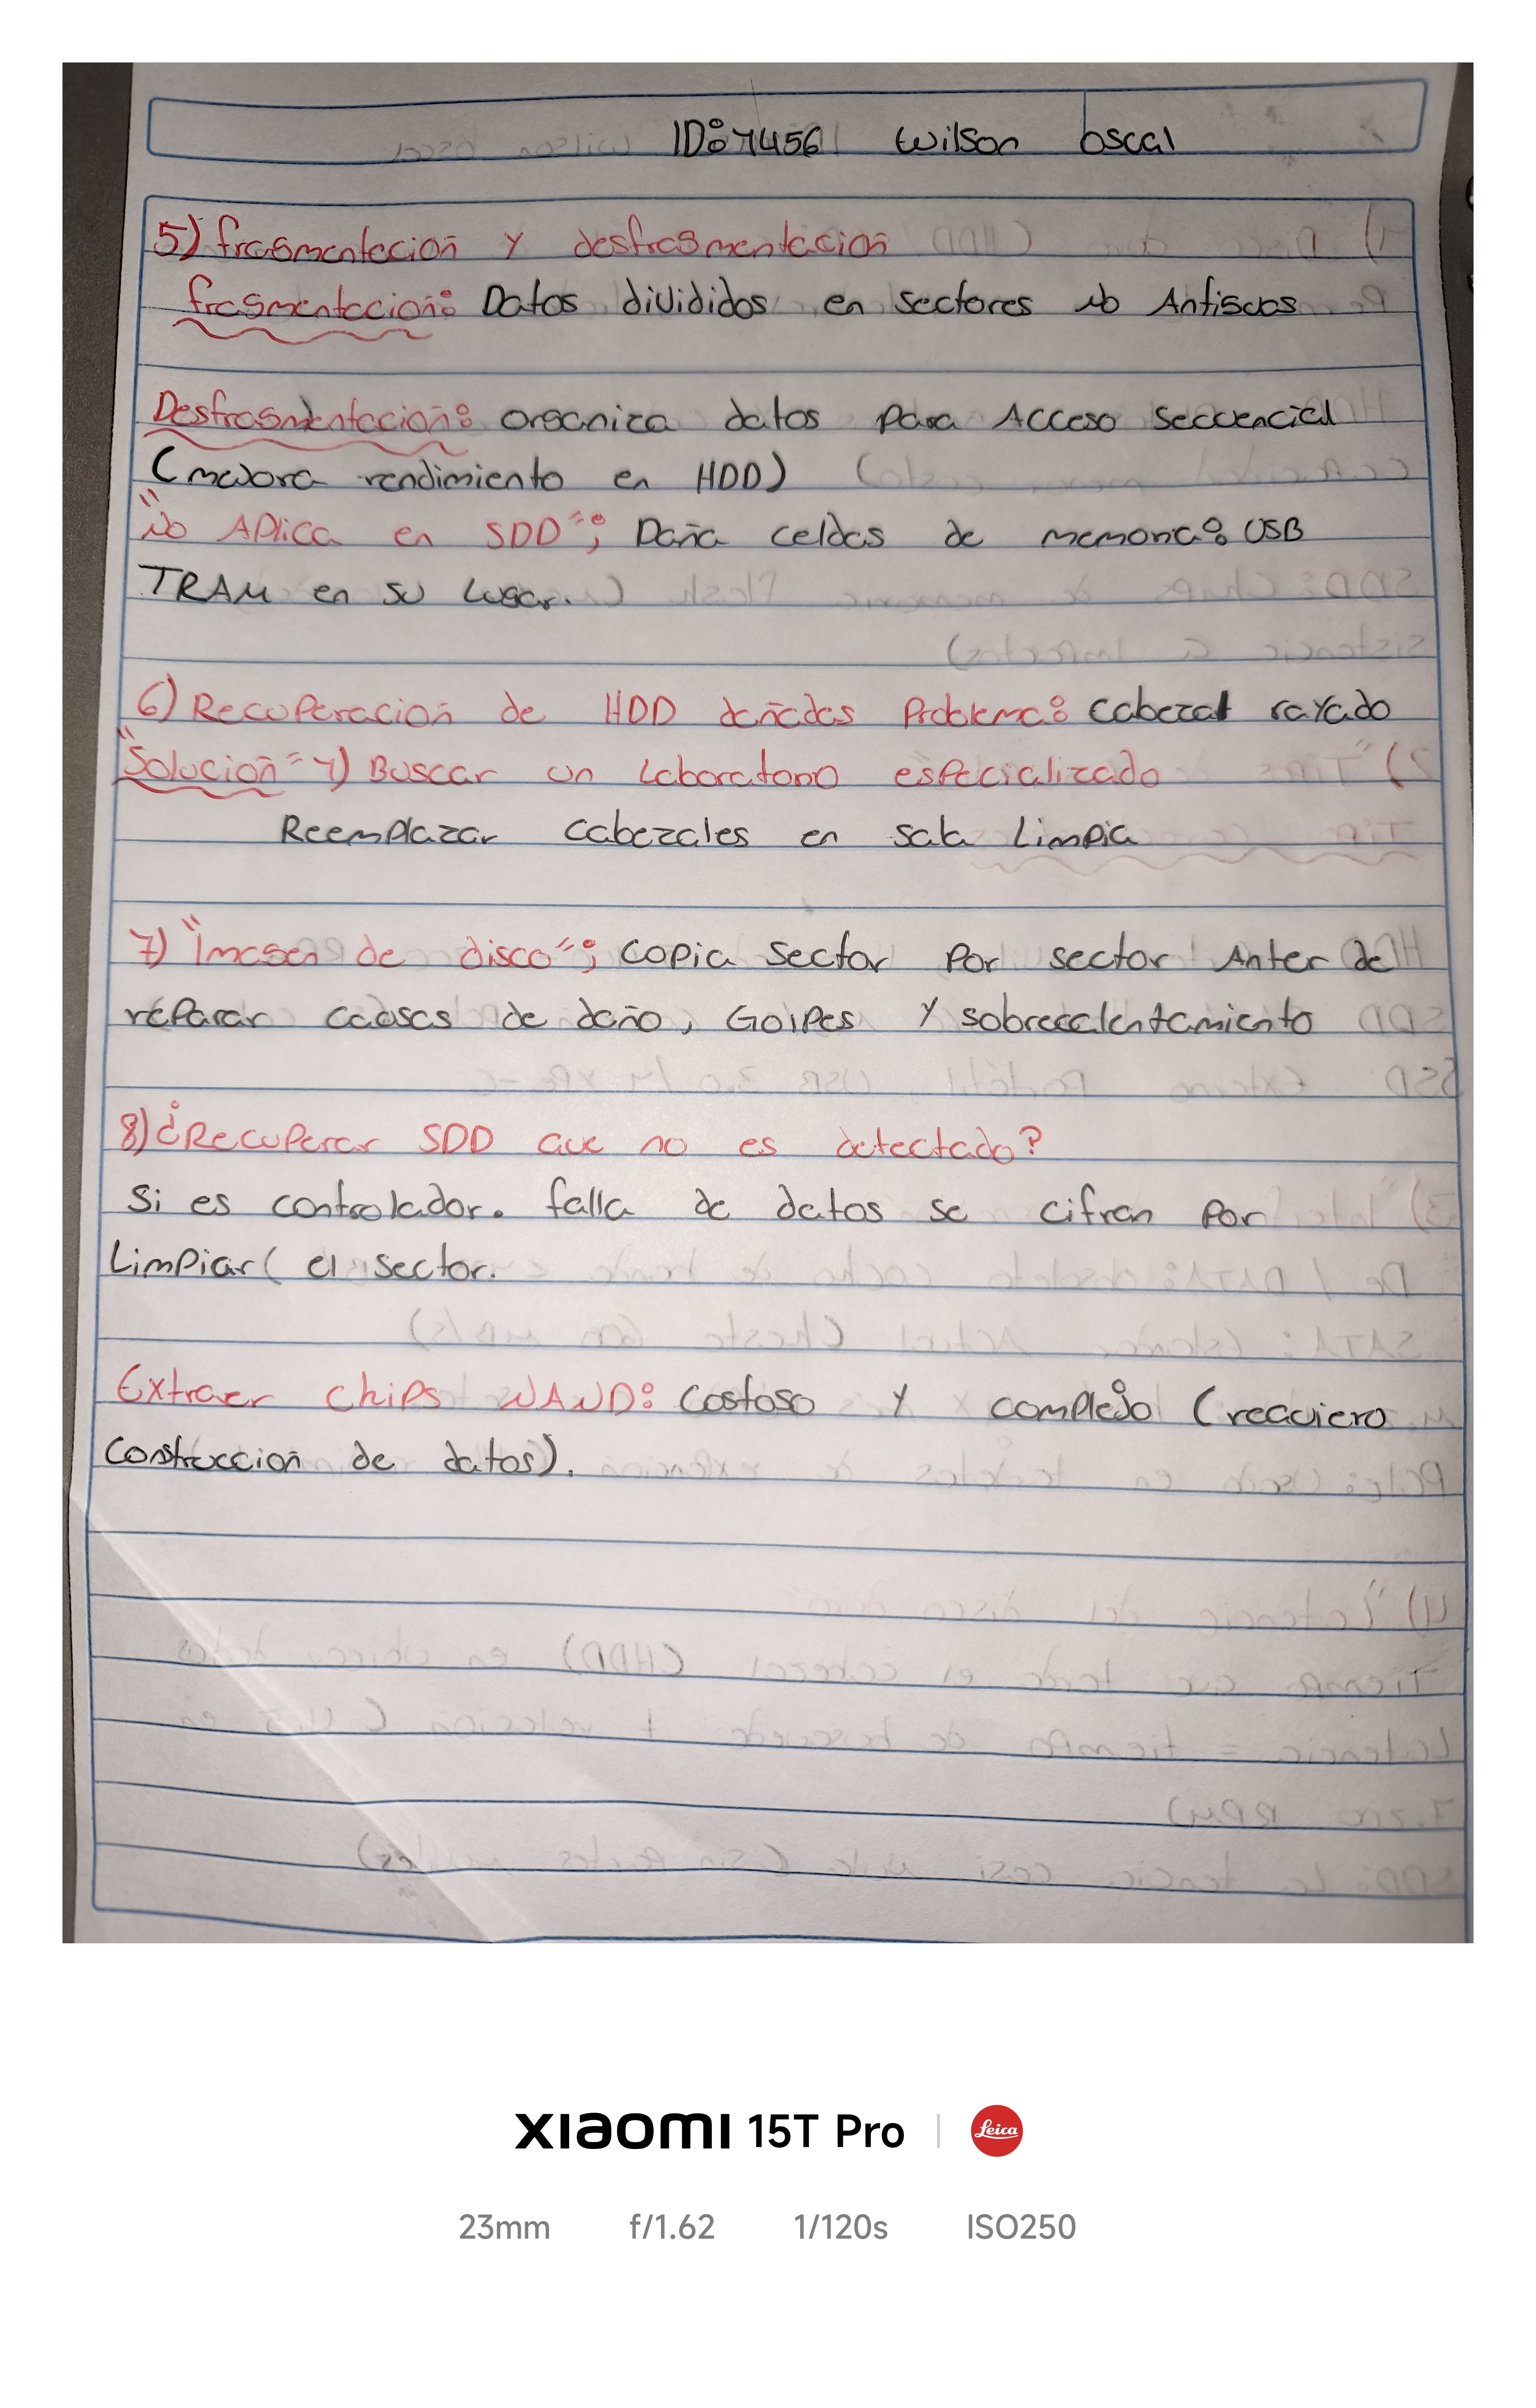 ID: 7456 Wilson Oscal
5) fragmentacion y desfragmentacion
fragmentacion: Datos divididos en sectores No Antiguos
Desfragmentacion: organiza datos para Acceso Secuencial
(mejora rendimiento en HDD)
"No Aplica en SDD"; Daña celdas de memoria: USB
TRAM en su Lugar.
6) Recuperacion de HDD dañados Problema: cabezal rayado
"Solucion" 1) Buscar un Laboratorio especializado
Reemplazar cabezales en sala Limpia
7) "Imagen de disco"; Copia Sector Por sector Anter de
reparar causas de daño, Golpes y sobrecalentamiento
8) ¿Recuperar SDD que no es detectado?
Si es controlador. falla de datos se cifran Por
Limpiar( el sector.
Extraer chips NAND: Costoso y complejo (requiero
Construccion de datos).
XIAOMI 15T Pro | Leica
23mm f/1.62 1/120s ISO250